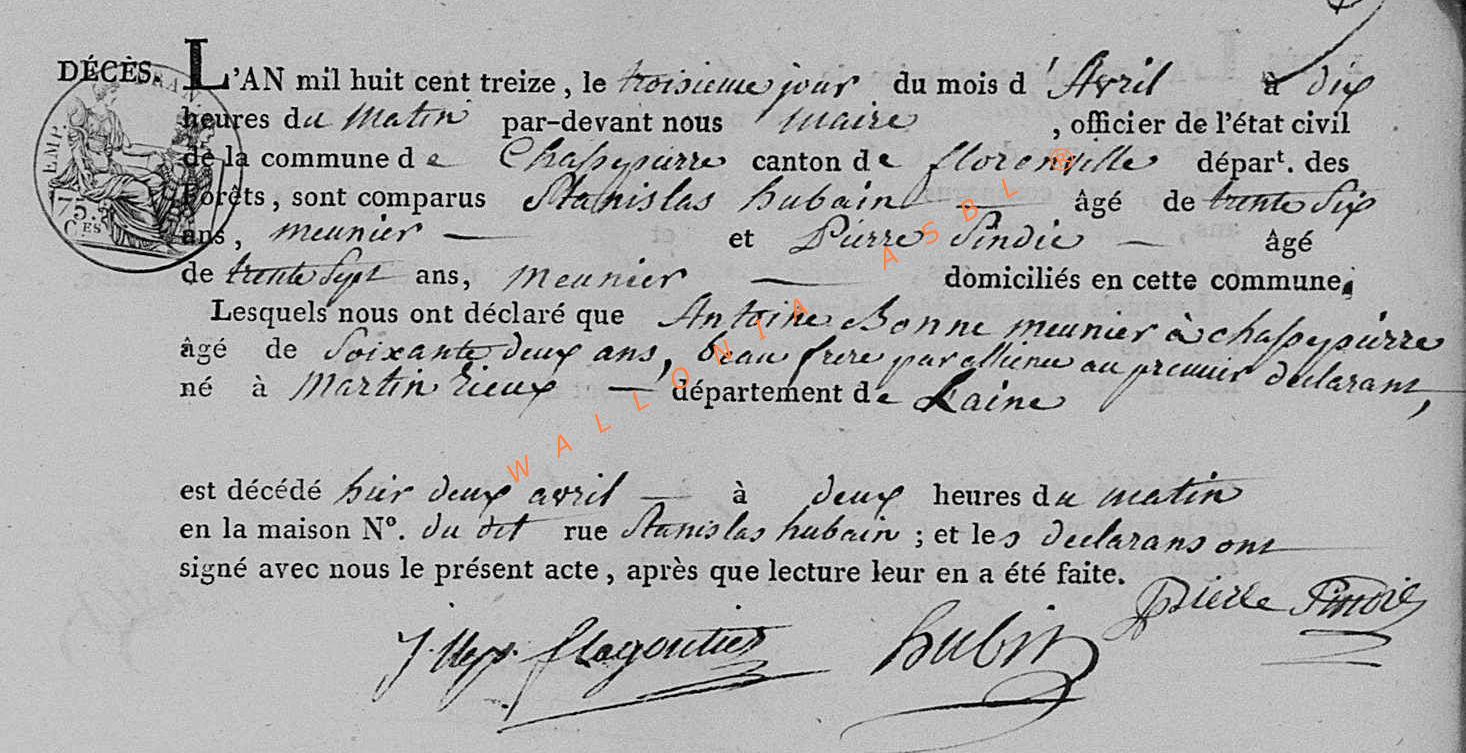 DÉCÈS. L'AN mil huit cent treize, le troisieme jour du mois d'Avril à dix
heures du Matin par-devant nous maire, officier de l'état civil
de la commune de Chassepierre canton de florenville départ. des
Forêts, sont comparus Stanislas hubain — âgé de trente Six
ans, meunier — et Pierre Pindie — âgé
de trente Sept ans, meunier — domiciliés en cette commune.
Lesquels nous ont déclaré que Antoine Bonne meunier à chassepierre
âgé de Soixante deux ans, beau frere par allience au premier declarant,
né à Martin rieux — département de Laine
est décédé hier deux avril — à deux heures du matin
en la maison N°. du dit rue Stanislas hubain ; et les declarans ont
signé avec nous le présent acte, après que lecture leur en a été faite.
Pierre
flagontier hubin
EMP. FRAN
75. CES
WALLONIA ASBL ®